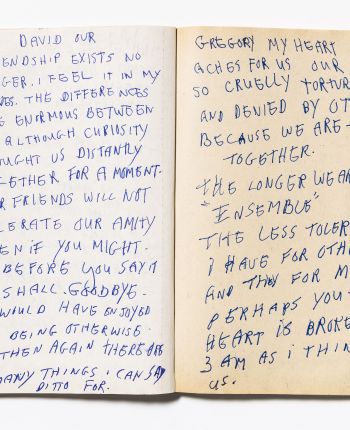 DAVID OUR
ENDSHIP EXISTS NO
GER. I FEEL IT IN MY
ES. THE DIFFERENCES
E ENORMOUS BETWEEN
ALTHOUGH CURIOSITY
UGHT US DISTANTLY
ETHER FOR A MOMENT.
R FRIENDS WILL NOT
LERATE OUR AMITY
EN IF YOU MIGHT.
BEFORE YOU SAY IT
SHALL. GOODBYE.
WOULD HAVE ENJOYED
BEING OTHERWISE.
THEN AGAIN THERE ARE
MANY THINGS I CAN SAY
DITTO FOR.
GREGORY MY HEART
ACHES FOR US OUR
SO CRUELLY TORTUR
AND DENIED BY OT
BECAUSE WE ARE-
TOGETHER.
THE LONGER WE AR
"ENSEMBLE"
THE LESS TOLER
I HAVE FOR OTH
AND THEY FOR M
PERHAPS YOU
HEART IS BROKE
3 AM AS I THIN
US.